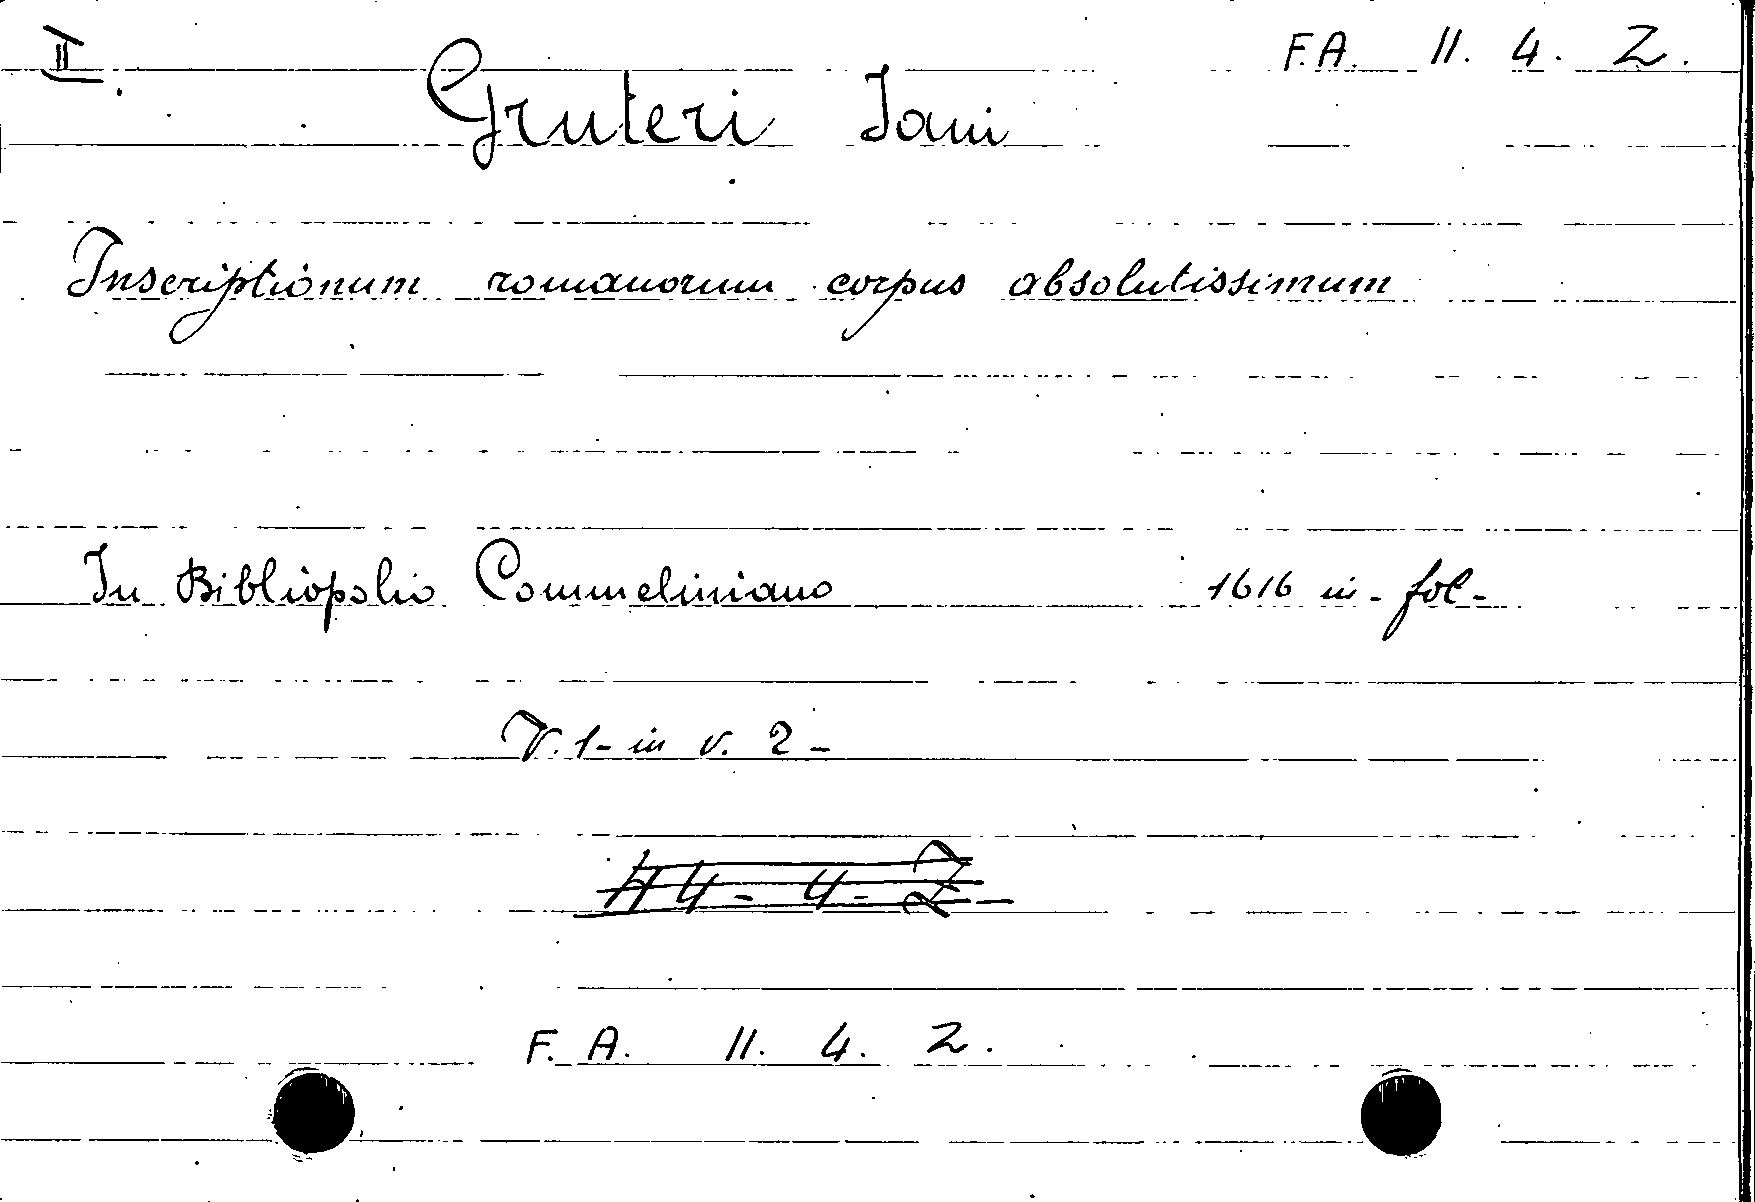 II. F.A. 11. 4. 2.
Gruteri Jani
Inscriptionum romanorum corpus absolutissimum
In Bibliopolio Commeliniano 1616 in-fol-
V. 1- in v. 2-
F. A. 11. 4. 2.